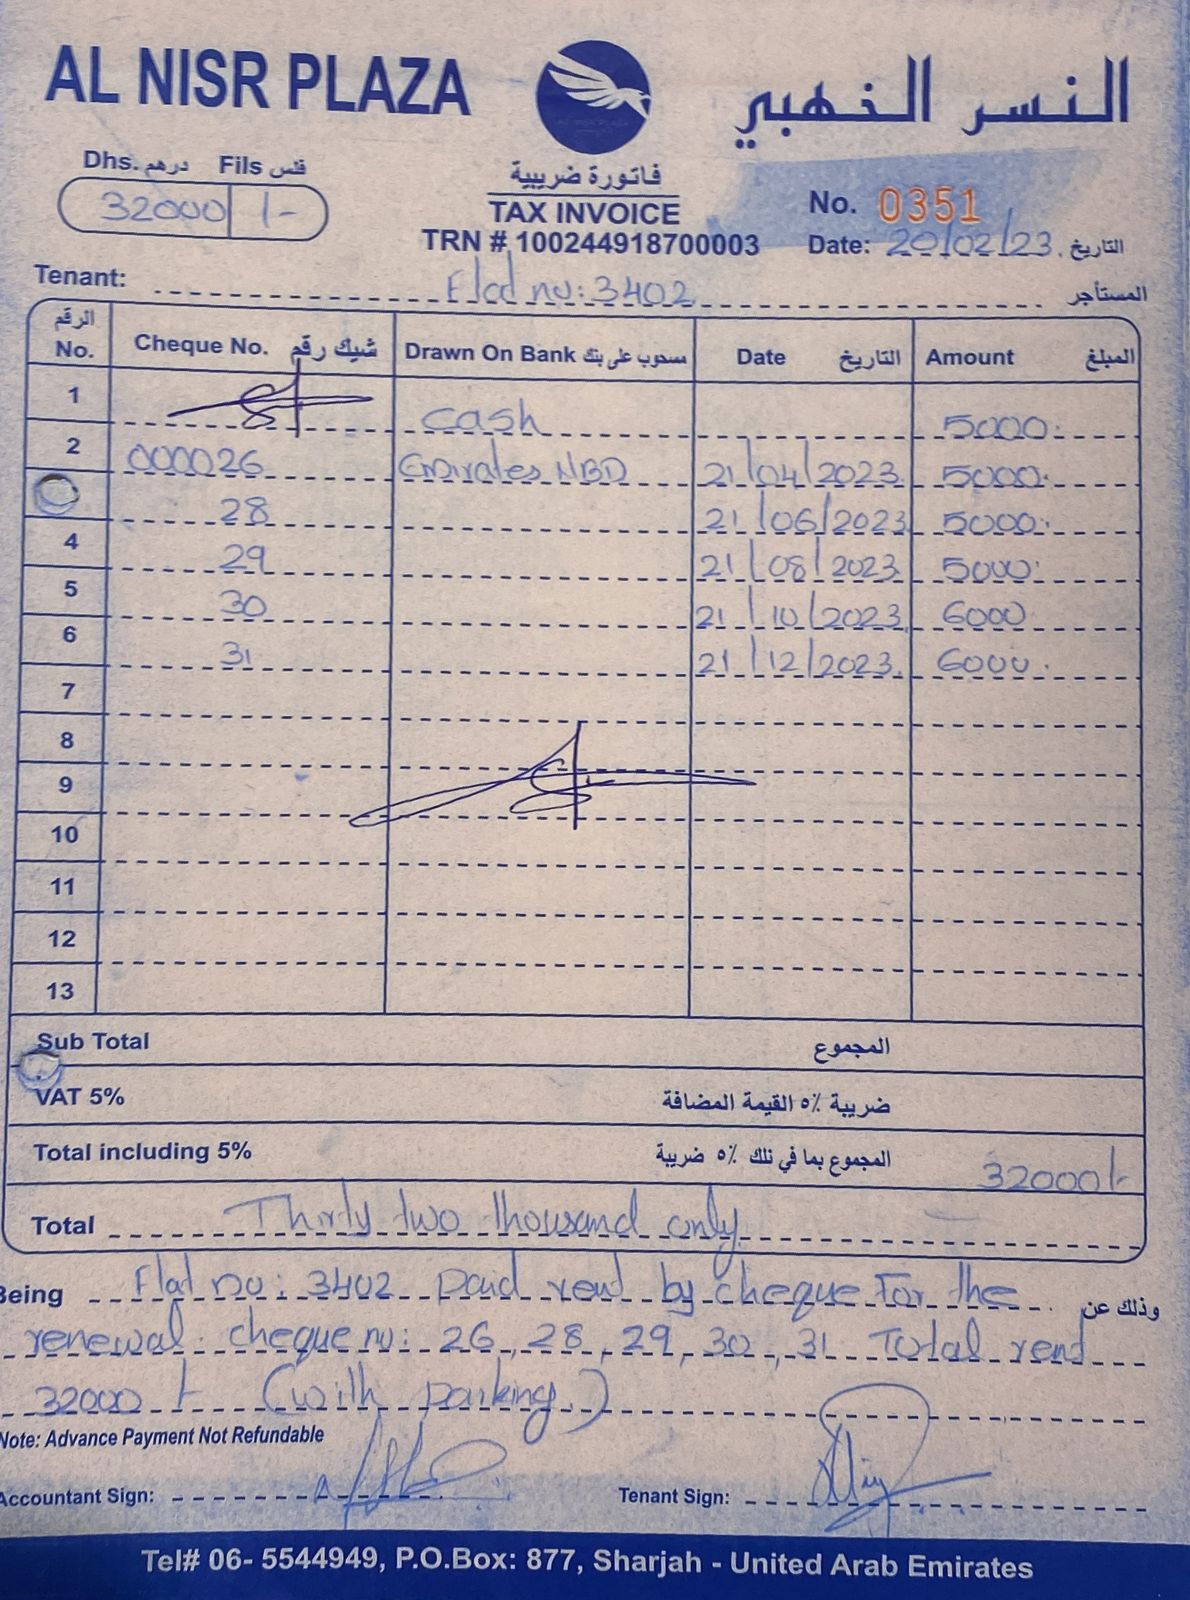 AL NISR PLAZA
النسر الذهبي
Dhs. درهم Fils فلس
32000 /-
فاتورة ضريبية
TAX INVOICE
TRN # 100244918700003
No. 0351
Date: 20/02/23 التاريخ
Tenant: Flat no: 3402 المستأجر
الرقم No. Cheque No. شيك رقم Drawn On Bank مسحوب على بنك Date التاريخ Amount المبلغ
1 cash 5000
2 000026 Emirates NBD 21/04/2023 5000
28 21/06/2023 5000
4 29 21/08/2023 5000
5 30 21/10/2023 6000
6 31 21/12/2023 6000
7
8
9
10
11
12
13
Sub Total المجموع
VAT 5% ضريبة ٥٪ القيمة المضافة
Total including 5% المجموع بما في تلك ٥٪ ضريبة 32000/-
Total Thirty two thousand only
Being Flat no: 3402 paid rent by cheque For the وذلك عن
renewal. cheque no: 26, 28, 29, 30, 31 Total rent
32000/- (with parking.)
Note: Advance Payment Not Refundable
Accountant Sign: Tenant Sign:
Tel# 06- 5544949, P.O.Box: 877, Sharjah - United Arab Emirates